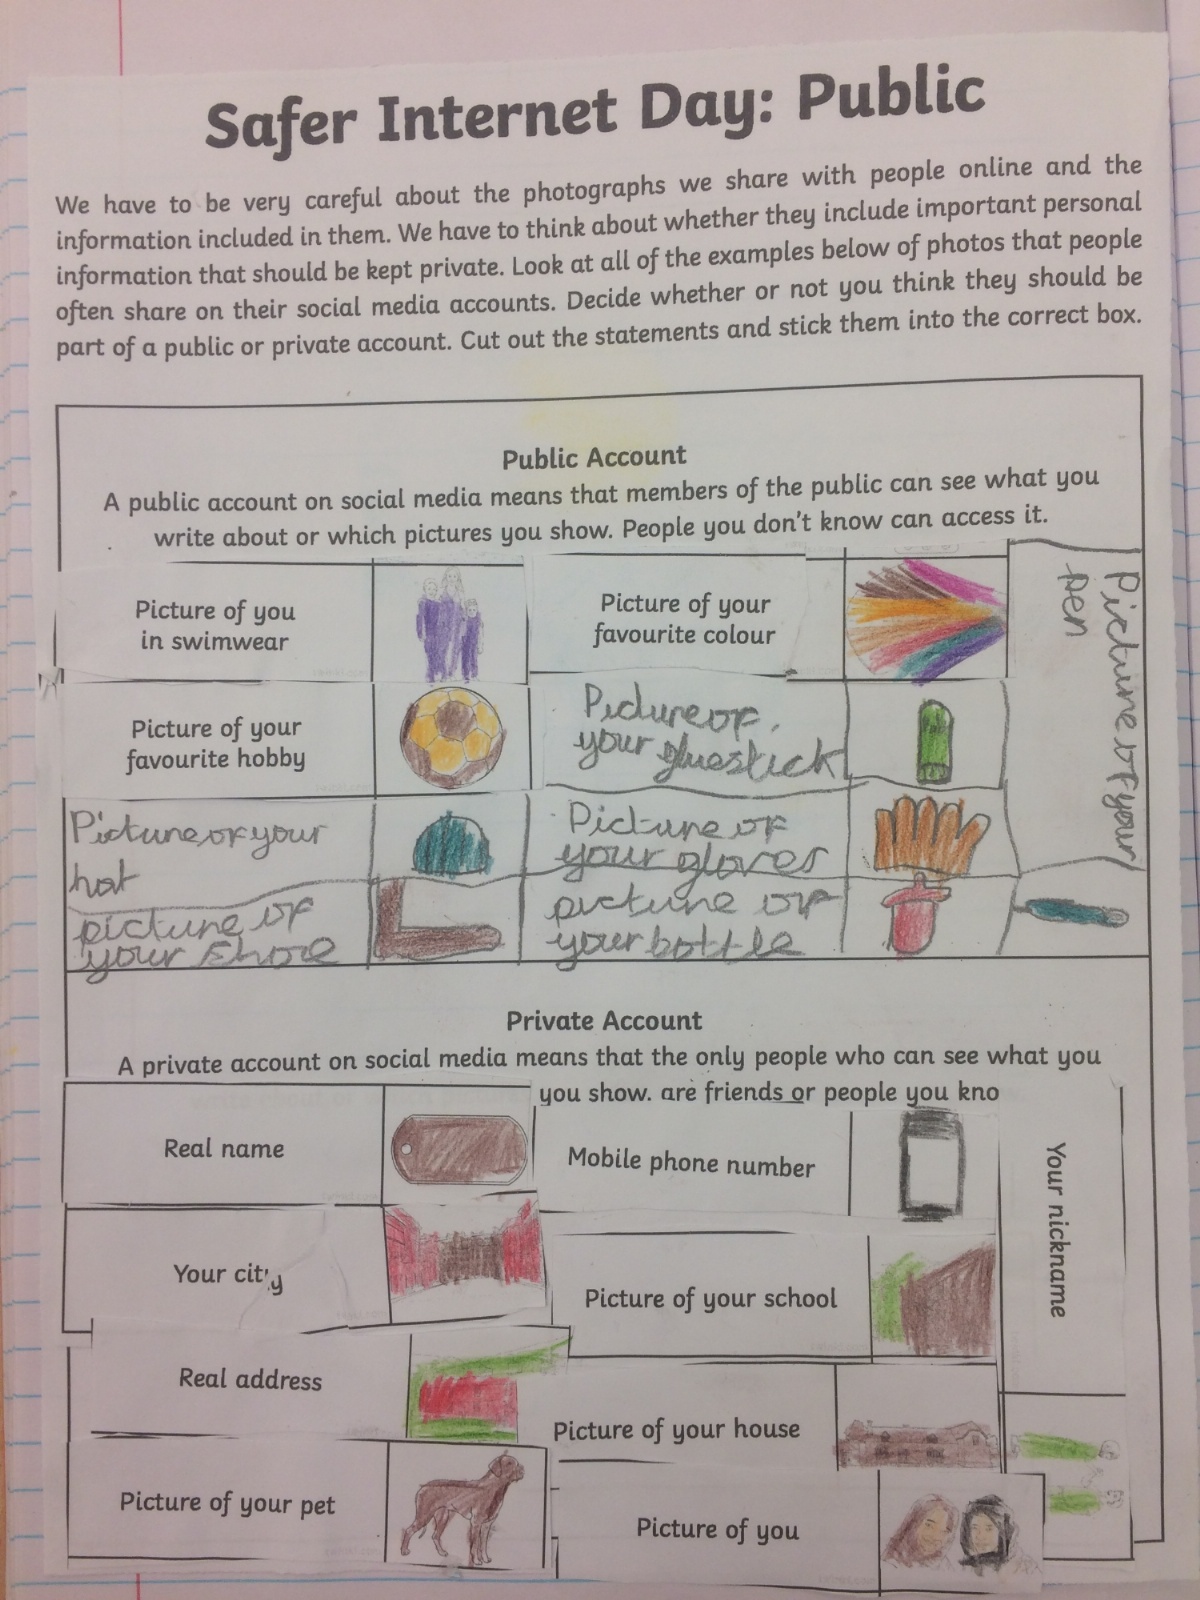 Safer Internet Day: Public
We have to be very careful about the photographs we share with people online and the
information included in them. We have to think about whether they include important personal
information that should be kept private. Look at all of the examples below of photos that people
often share on their social media accounts. Decide whether or not you think they should be
part of a public or private account. Cut out the statements and stick them into the correct box.
Public Account
A public account on social media means that members of the public can see what you
write about or which pictures you show. People you don't know can access it.
Picture of you
in swimwear
Picture of your
favourite colour
Picture of your
pen
Picture of your
favourite hobby
Picture of
your gluestick
Picture of your
hat
Picture of
your gloves
picture of
your shoe
picture of
your bottle
Private Account
A private account on social media means that the only people who can see what you
you show. are friends or people you kno
Real name
Mobile phone number
Your nickname
Your city
Picture of your school
Real address
Picture of your house
Picture of your pet
Picture of you